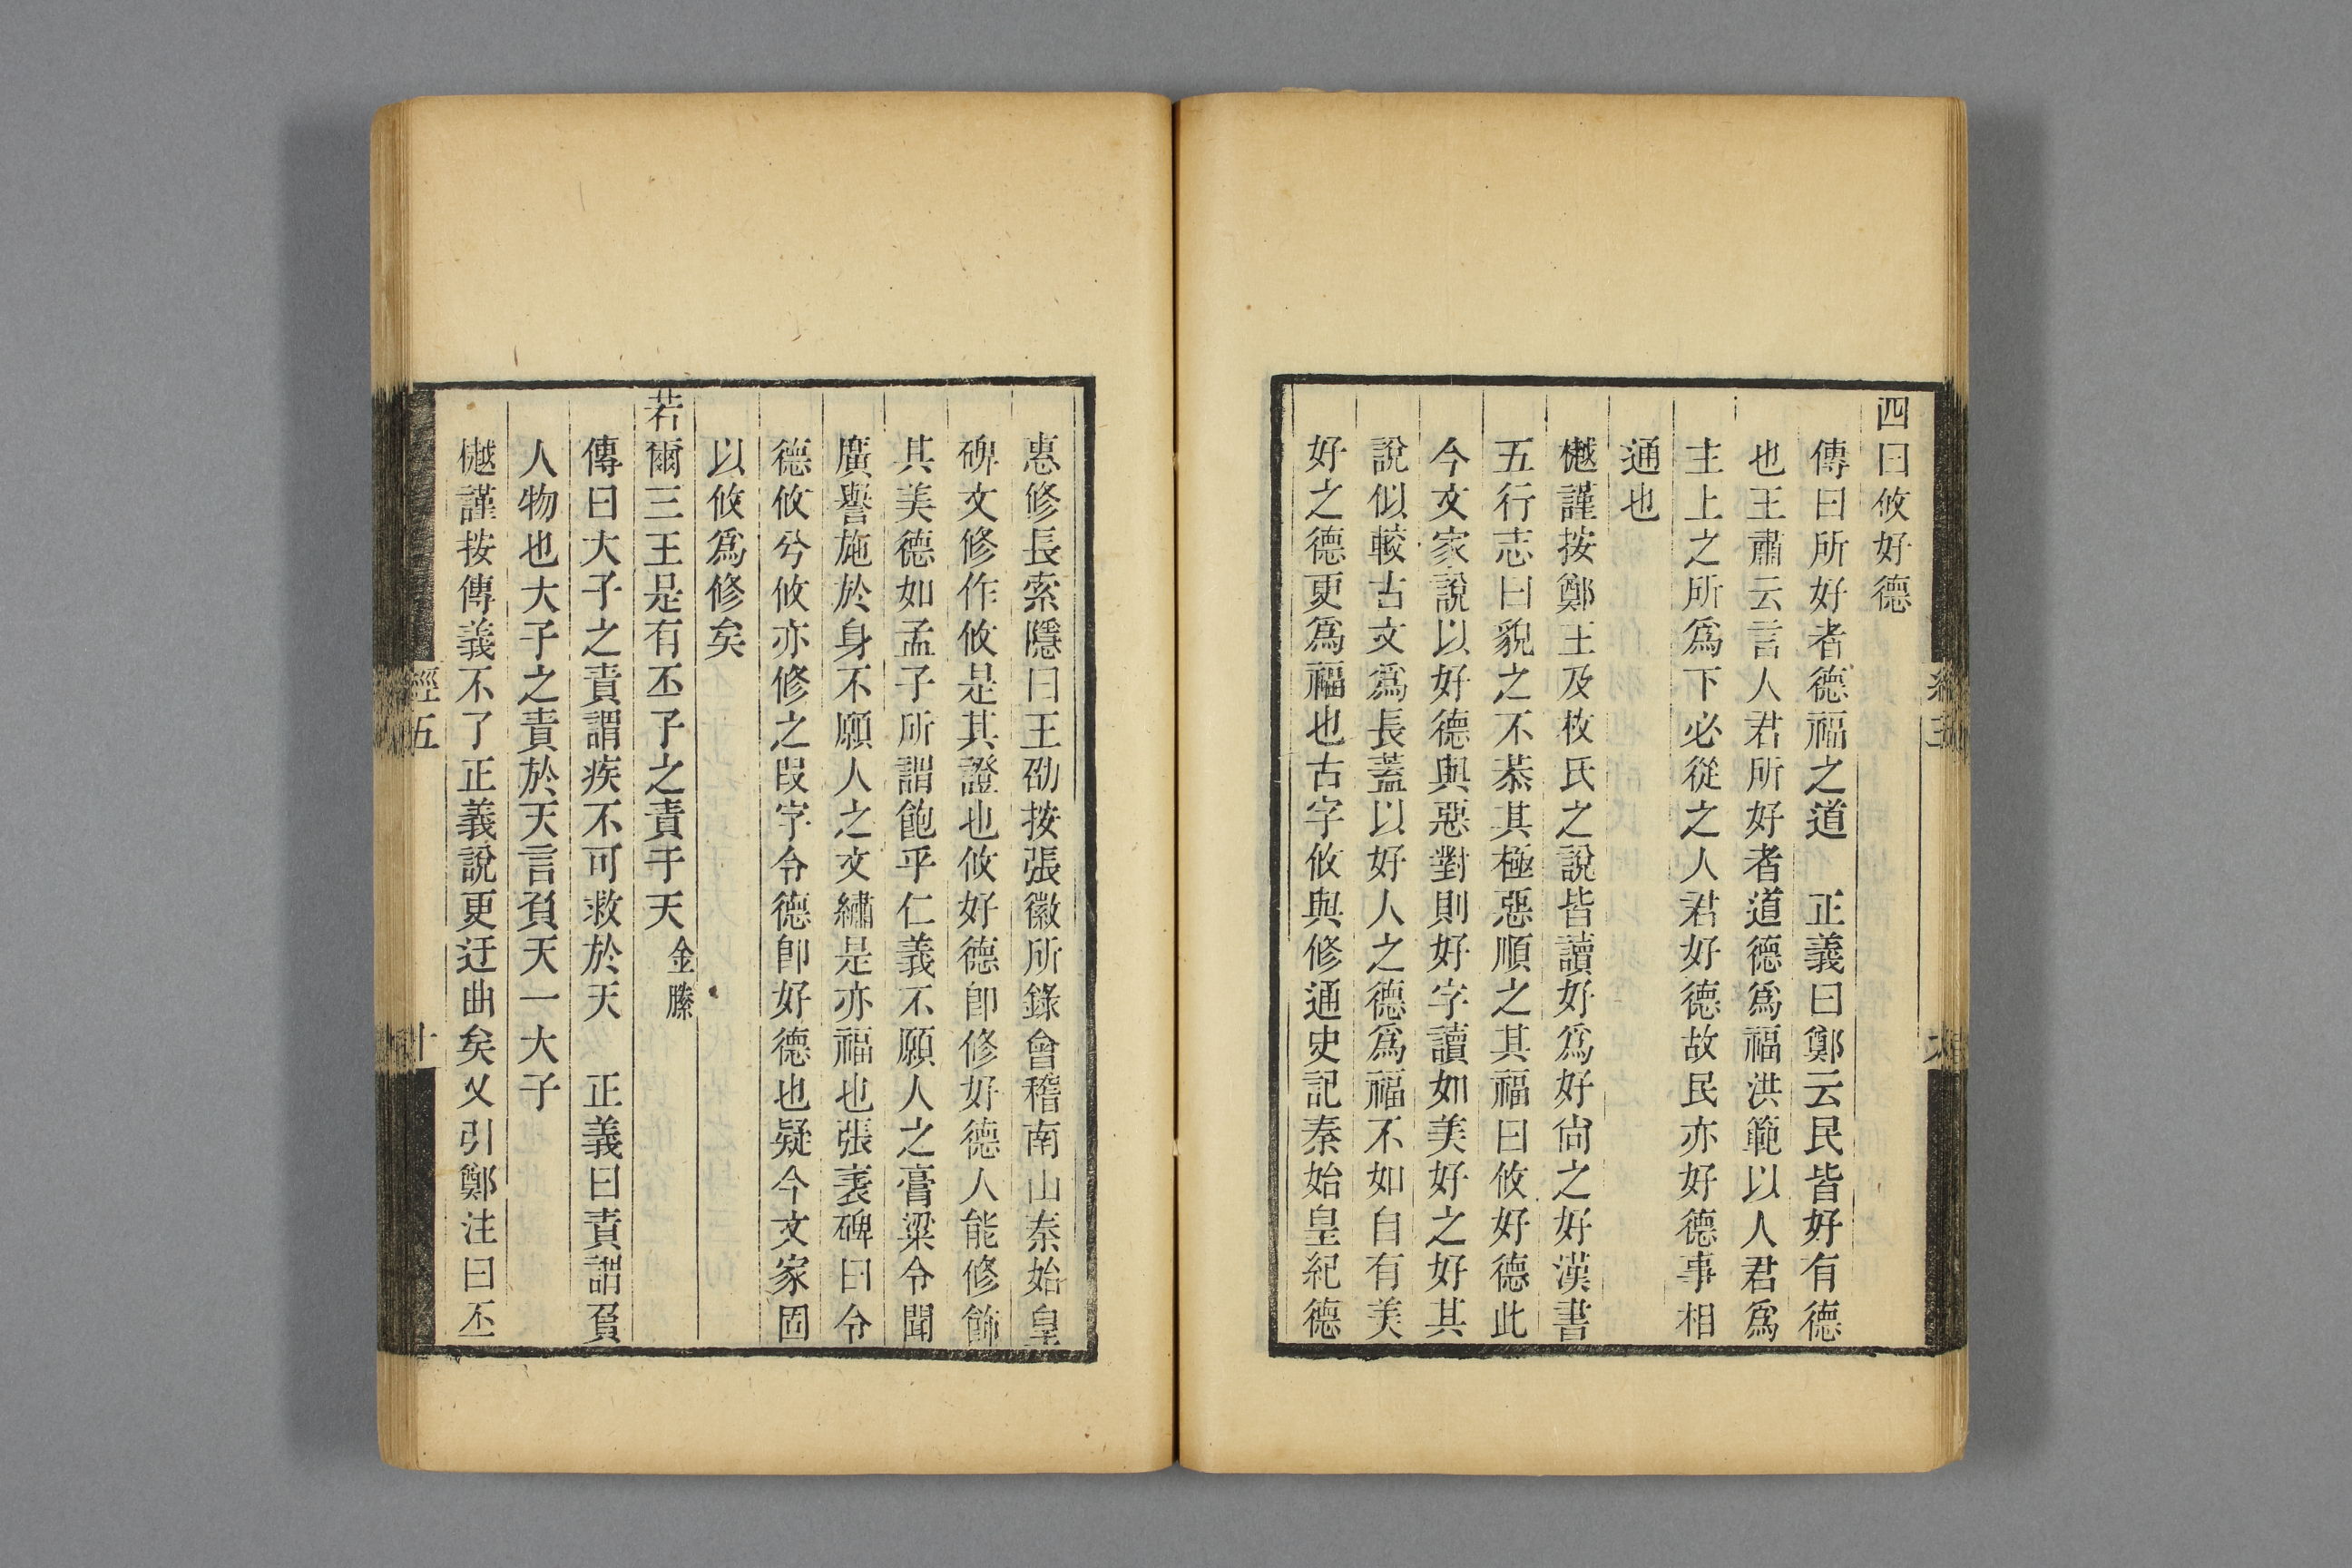 四曰攸好德
傳曰所好者德福之道　正義曰鄭云民皆好有德
也王肅云言人君所好者道德爲福洪範以人君爲
主上之所爲下必從之人君好德故民亦好德事相
通也
樾謹按鄭王及枚氏之說皆讀好爲好尙之好漢書
五行志曰貌之不恭其極惡順之其福曰攸好德此
今文家說以好德與惡對則好字讀如美好之好其
說似較古文爲長蓋以好人之德爲福不如自有美
好之德更爲福也古字攸與修通史記秦始皇紀德
惠修長索隱曰王劭按張徽所錄會稽南山秦始皇
碑文修作攸是其證也攸好德卽修好德人能修飾
其美德如孟子所謂飽乎仁義不願人之膏粱令聞
廣譽施於身不願人之文繡是亦福也張表碑曰令
德攸兮攸亦修之叚字令德卽好德也疑今文家固
以攸爲修矣
若爾三王是有丕子之責于天 金縢
傳曰大子之責謂疾不可救於天　正義曰責謂負
人物也大子之責於天言負天一大子
樾謹按傳義不了正義說更迂曲矣又引鄭注曰丕
經五
十